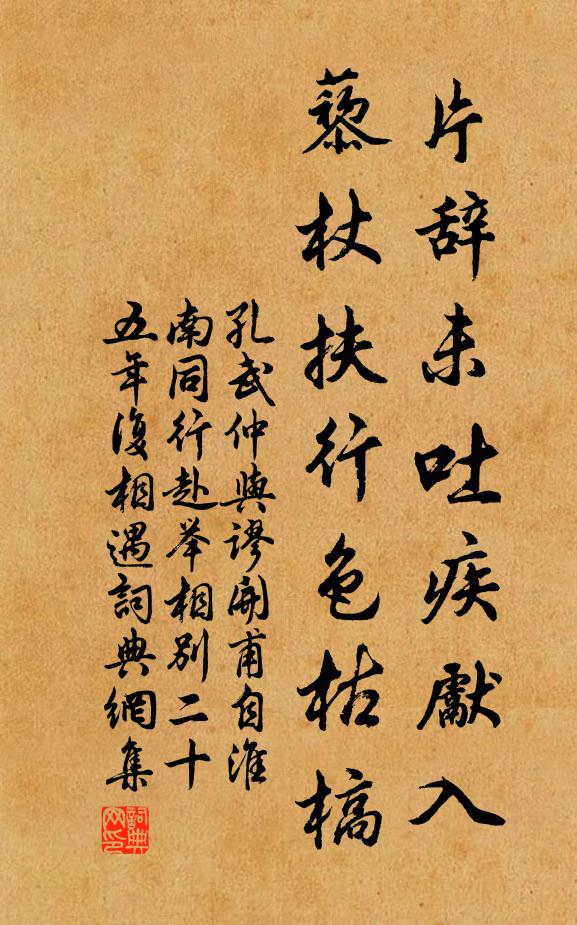 片辞未吐疾献入
藜杖扶行色枯槁
孔武仲與謬開甫自淮
南同行赴举相别二十
五年復相遇詞典網集
詞典网印